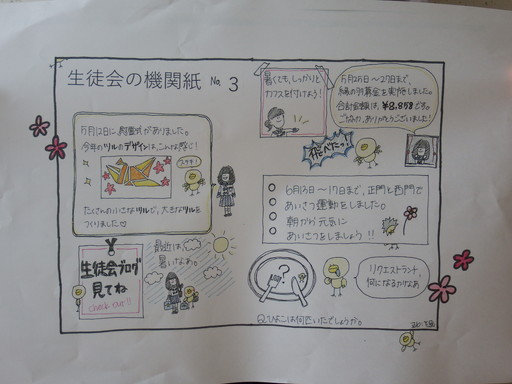 生徒会の機関紙 No. 3
暑くても、しっかりと
カフスを付けよう!
5月25日〜27日まで、
緑の羽募金を実施しました。
合計金額は、¥8,858です。
ご協力、ありがとうございました!
飛べたっ!
5月12日に、附属式がありました。
今年のツルのデザインは、こんな感じ!
ステキ!
たくさんの小さなツルで、大きなツルを
つくりました♡
6月13日〜17日まで、正門と西門で
あいさつ運動をしました。
朝から元気に
あいさつをしましょう!!
生徒会ブログ
見てね
check out!!
最近は、
暑いなぁ。
?
リクエストランチ、
何になるかなぁ
Q.ひよこは何匹いたでしょうか。